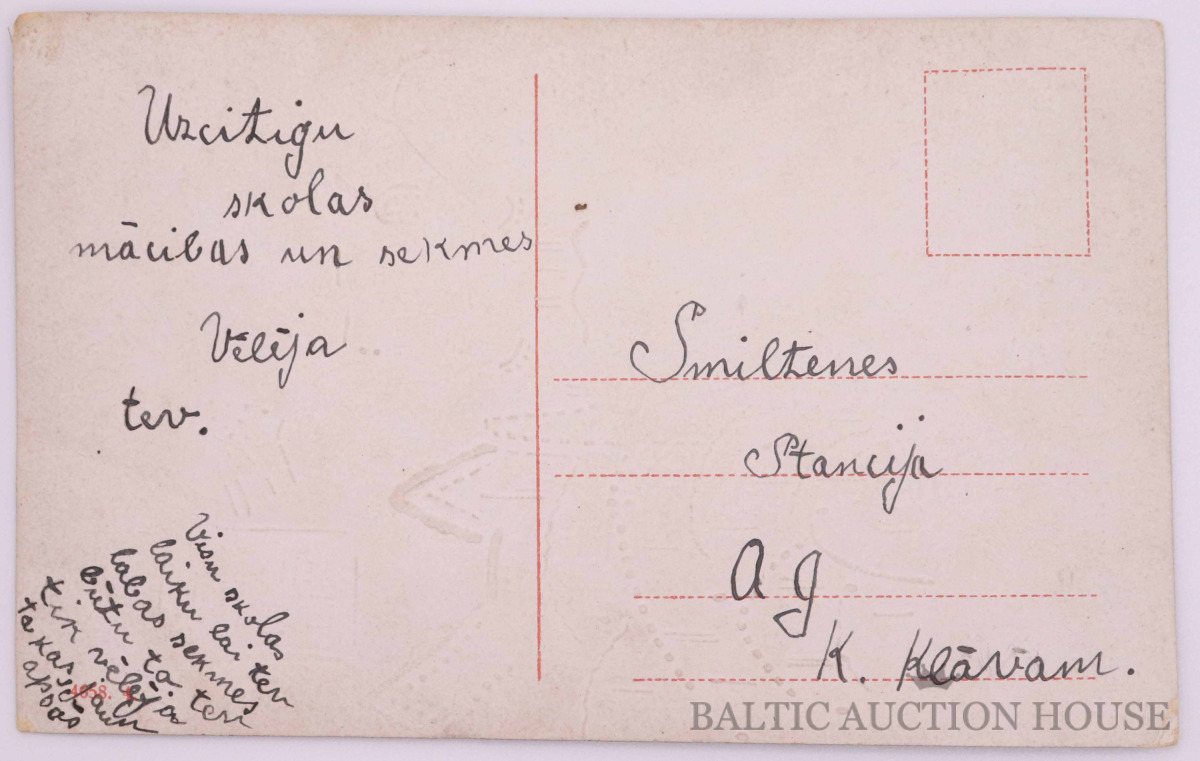 Uzcitigu
skolas
mācibas un sekmes
Vēlēja
tev.
Visu skolas
laiku lai tev
labas sekmes
būtu to
tik vēlēja tevi
ta kas jaun
apsās
4658.
Smiltenes
Stancija
A g
K. Kļāvam.
BALTIC AUCTION HOUSE